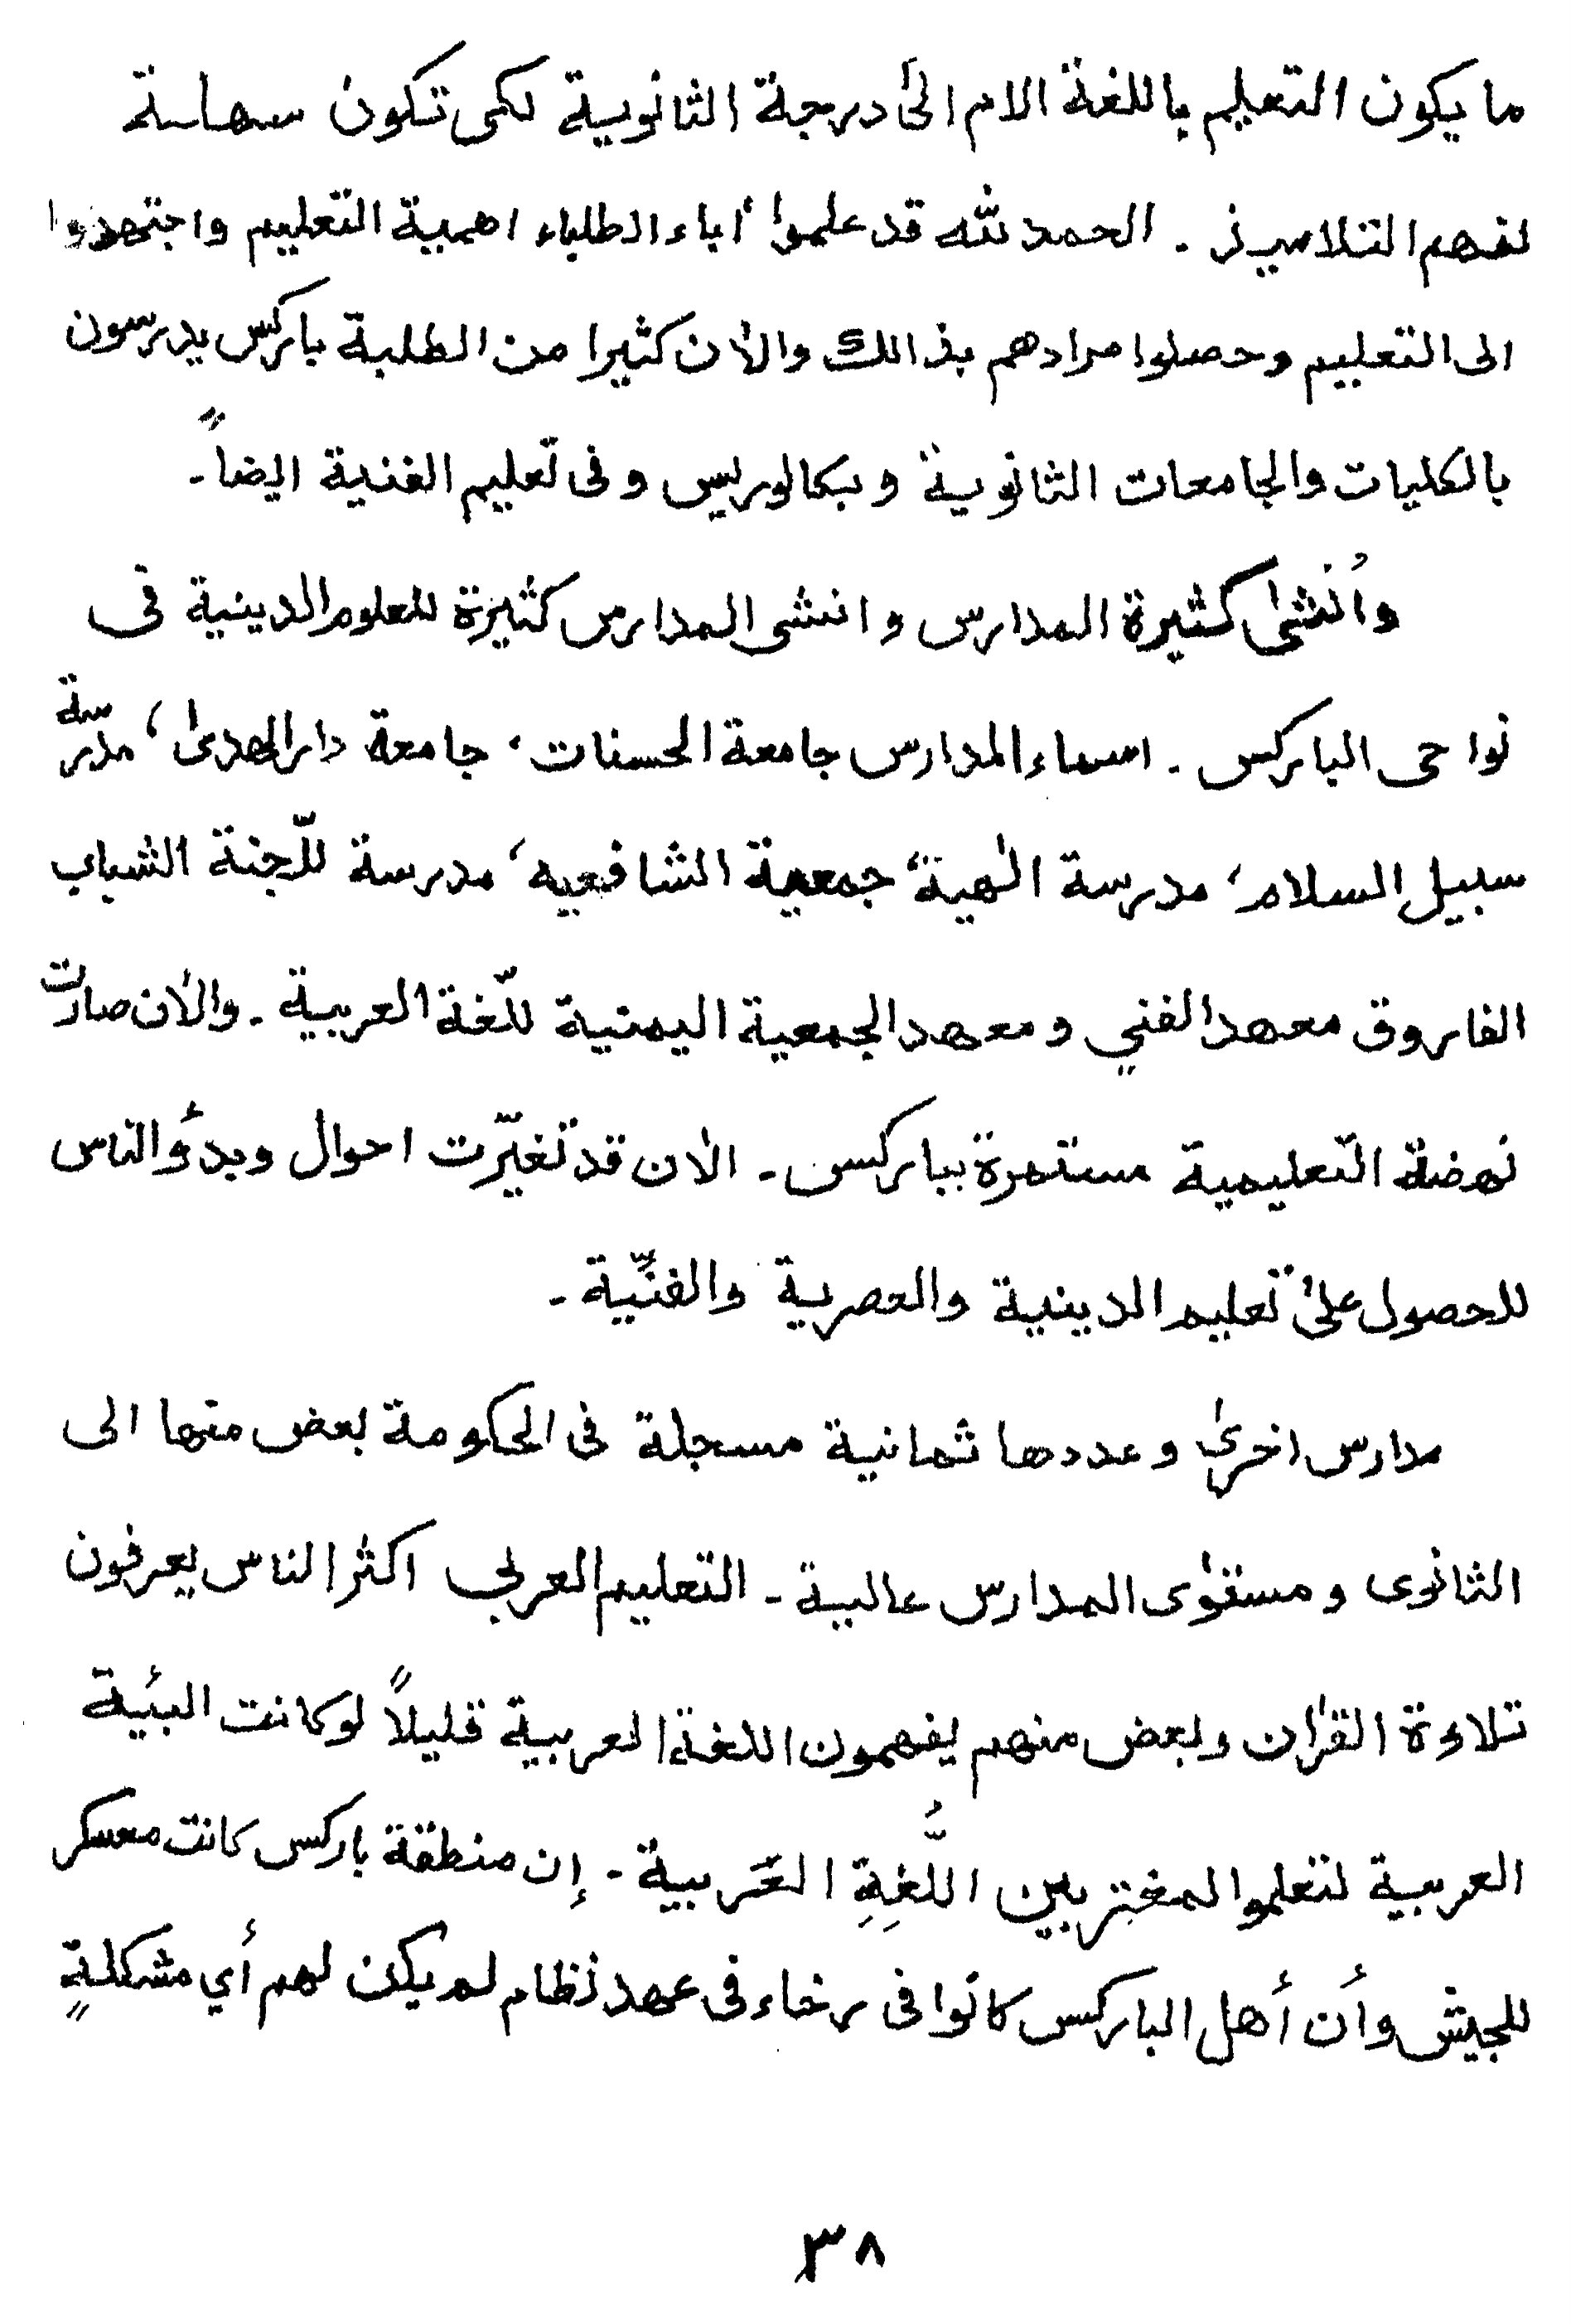 ما يكون التعليم باللغة الام الىٰ درجة الثانوية لكى تكون سهاسة
لفهم التلاميذ ۔ الحمد لله قد علموا اباء الطلباء اهمية التعليم واجتهدوا
الى التعليم وحصلوا مرادهم بذالك والاٰن كثيرا من الطلبة باركس يدرسون
بالكليات والجامعات الثانوية وبكالوريس وفى تعليم الفنية ايضاً۔
وأنشىٰ كثيرة المدارس وانشى المدارس كثيرة للعلوم الدينية فى
نواحى الباركس ۔ اسماء المدارس جامعة الحسنات، جامعة دار الهدىٰ، مدرسة
سبيل السلام، مدرسة الٰهية، جمعية الشافعيه، مدرسة للّجنة الشباب
الفاروق معهد الفني ومعهد الجمعية اليمنية للّغة العربية ۔ والاٰن صارت
نهضة التّعليمية مستمرة بباركس ۔ الاٰن قد تغيّرت احوال وبدؤ الناس
للحصول علىٰ تعليم الدينية والعصرية والفنّية ۔
مدارس اخرىٰ وعددها ثمانية مسجلة فى الحكومة بعض منها الى
الثانوى ومستوٰى المدارس عالية ۔ التعليم العربي اكثر الناس يعرفون
تلاوة القرٰان وبعض منهم يفهمون اللغة العربية قليلاً لوكانت البئية
العربية لتعلموا المغتربين اللُّغِةِ العَربية ۔ إن منطقة باركس كانت معسكر
للجيش وأن أهل الباركس كانوا فى رخاء فى عهد نظام لم يكن لهم أي مشكلةٍ
٣٨